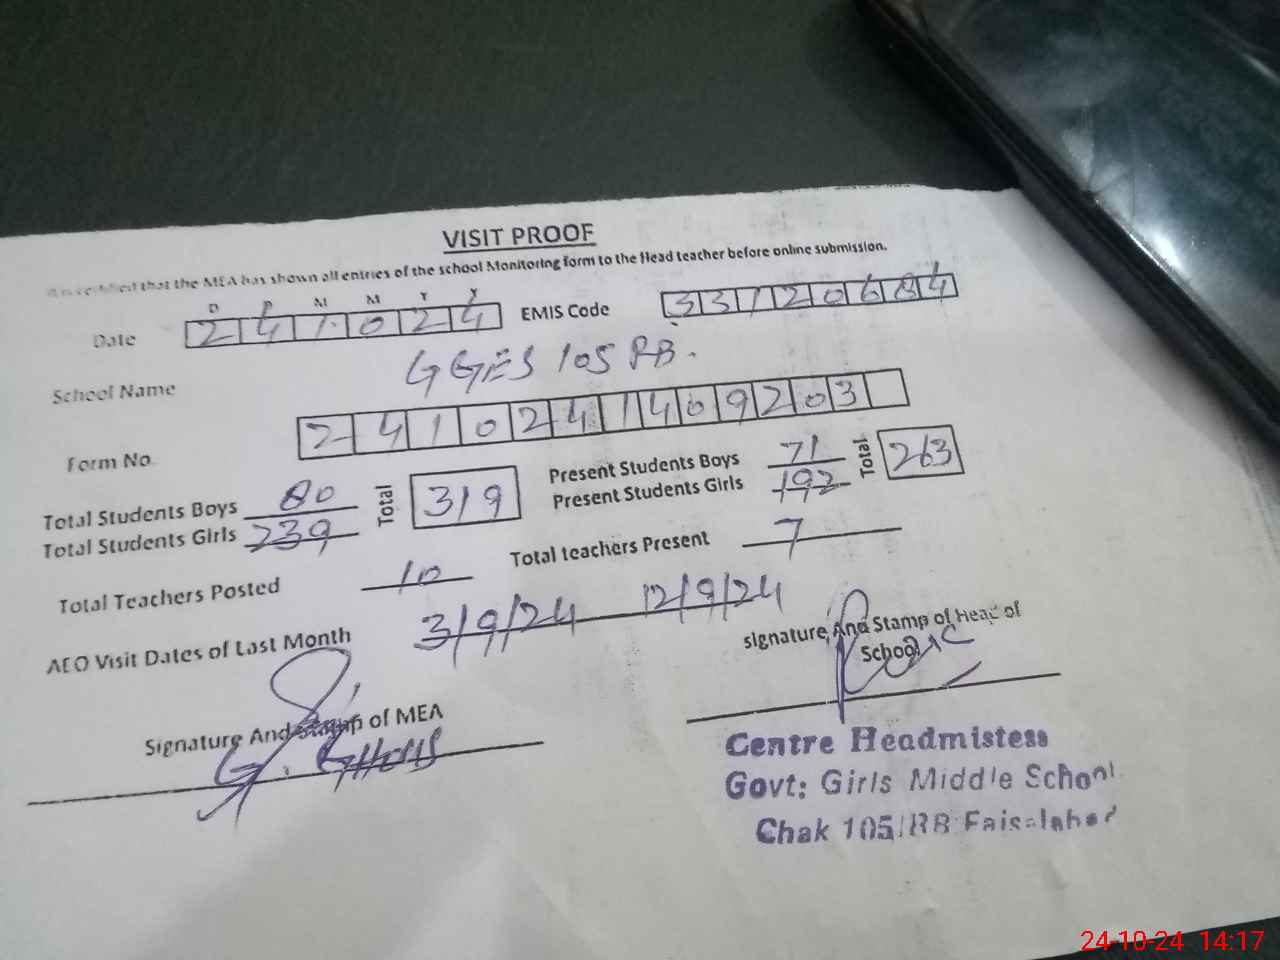 VISIT PROOF
It is certified that the MEA has shown all entries of the school Monitoring form to the Head teacher before online submission.
D D M M Y Y
Date 2 4 1 0 2 4 EMIS Code 3 3 1 2 0 6 8 4
School Name GGES 105 RB.
Form No 2 4 1 0 2 4 1 4 0 9 2 0 3
Total Students Boys 80 Total 319 Present Students Boys 71 Total 263
Total Students Girls 239 Present Students Girls 192
Total Teachers Posted 10 Total teachers Present 7
AEO Visit Dates of Last Month 3/9/24 12/9/24
signature And Stamp of Head of
School
Signature And Stamp of MEA
Centre Headmistess
Govt: Girls Middle School
Chak 105/RB Faisalabad
24-10-24 14:17